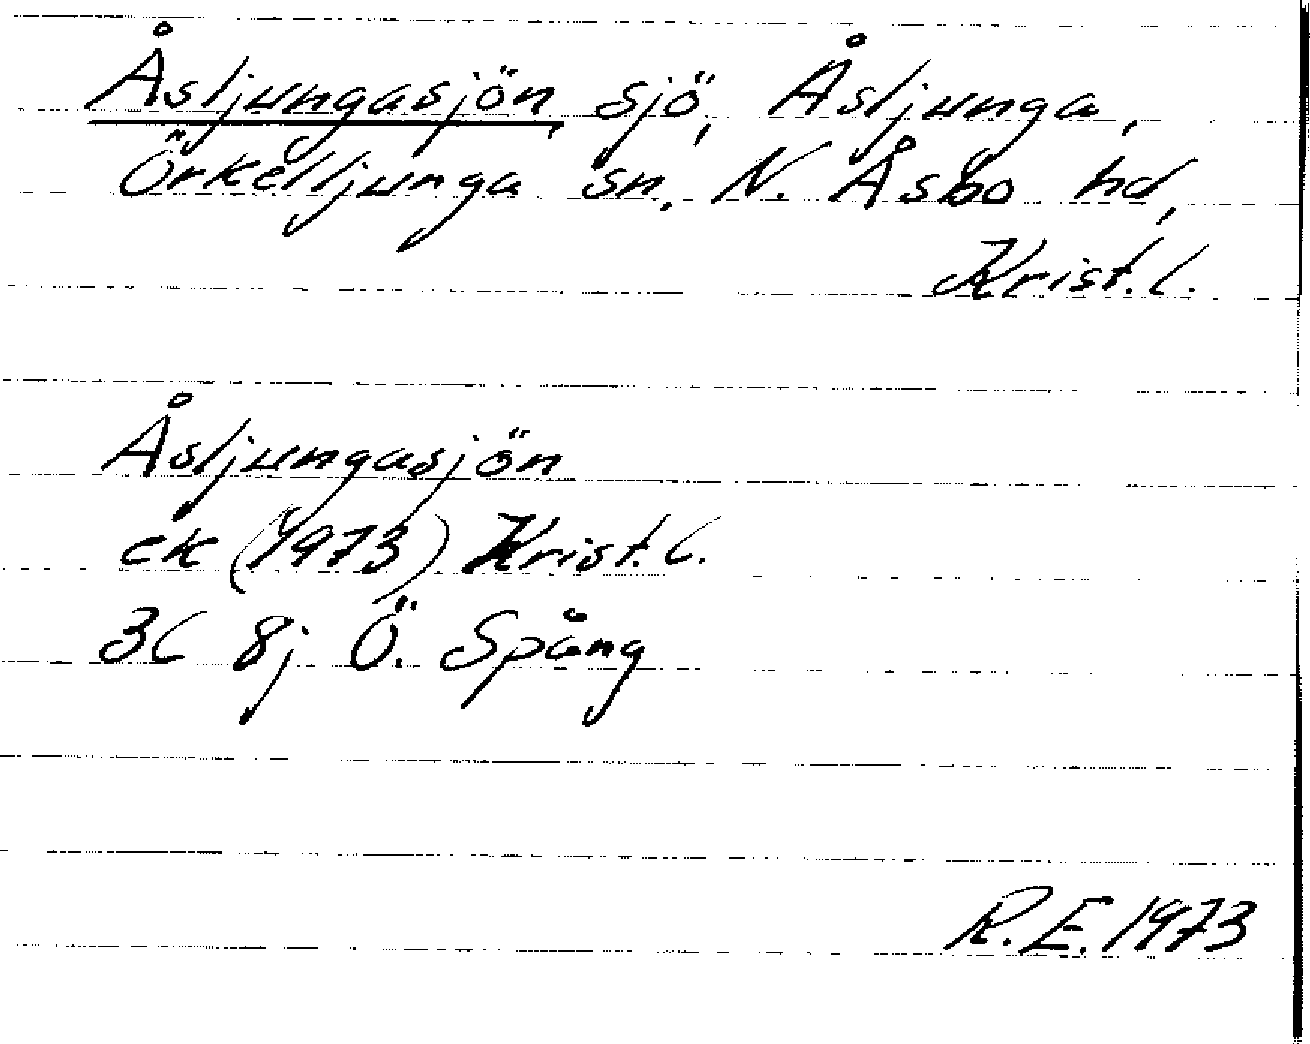 Åsljungasjön, sjö, Åsljunga,
Örkelljunga sn, N. Åsbo hd,
Krist. l.
Åsljungasjön
ek (1973) Krist. l.
3C 8j Ö. Spång
R.E. 1973